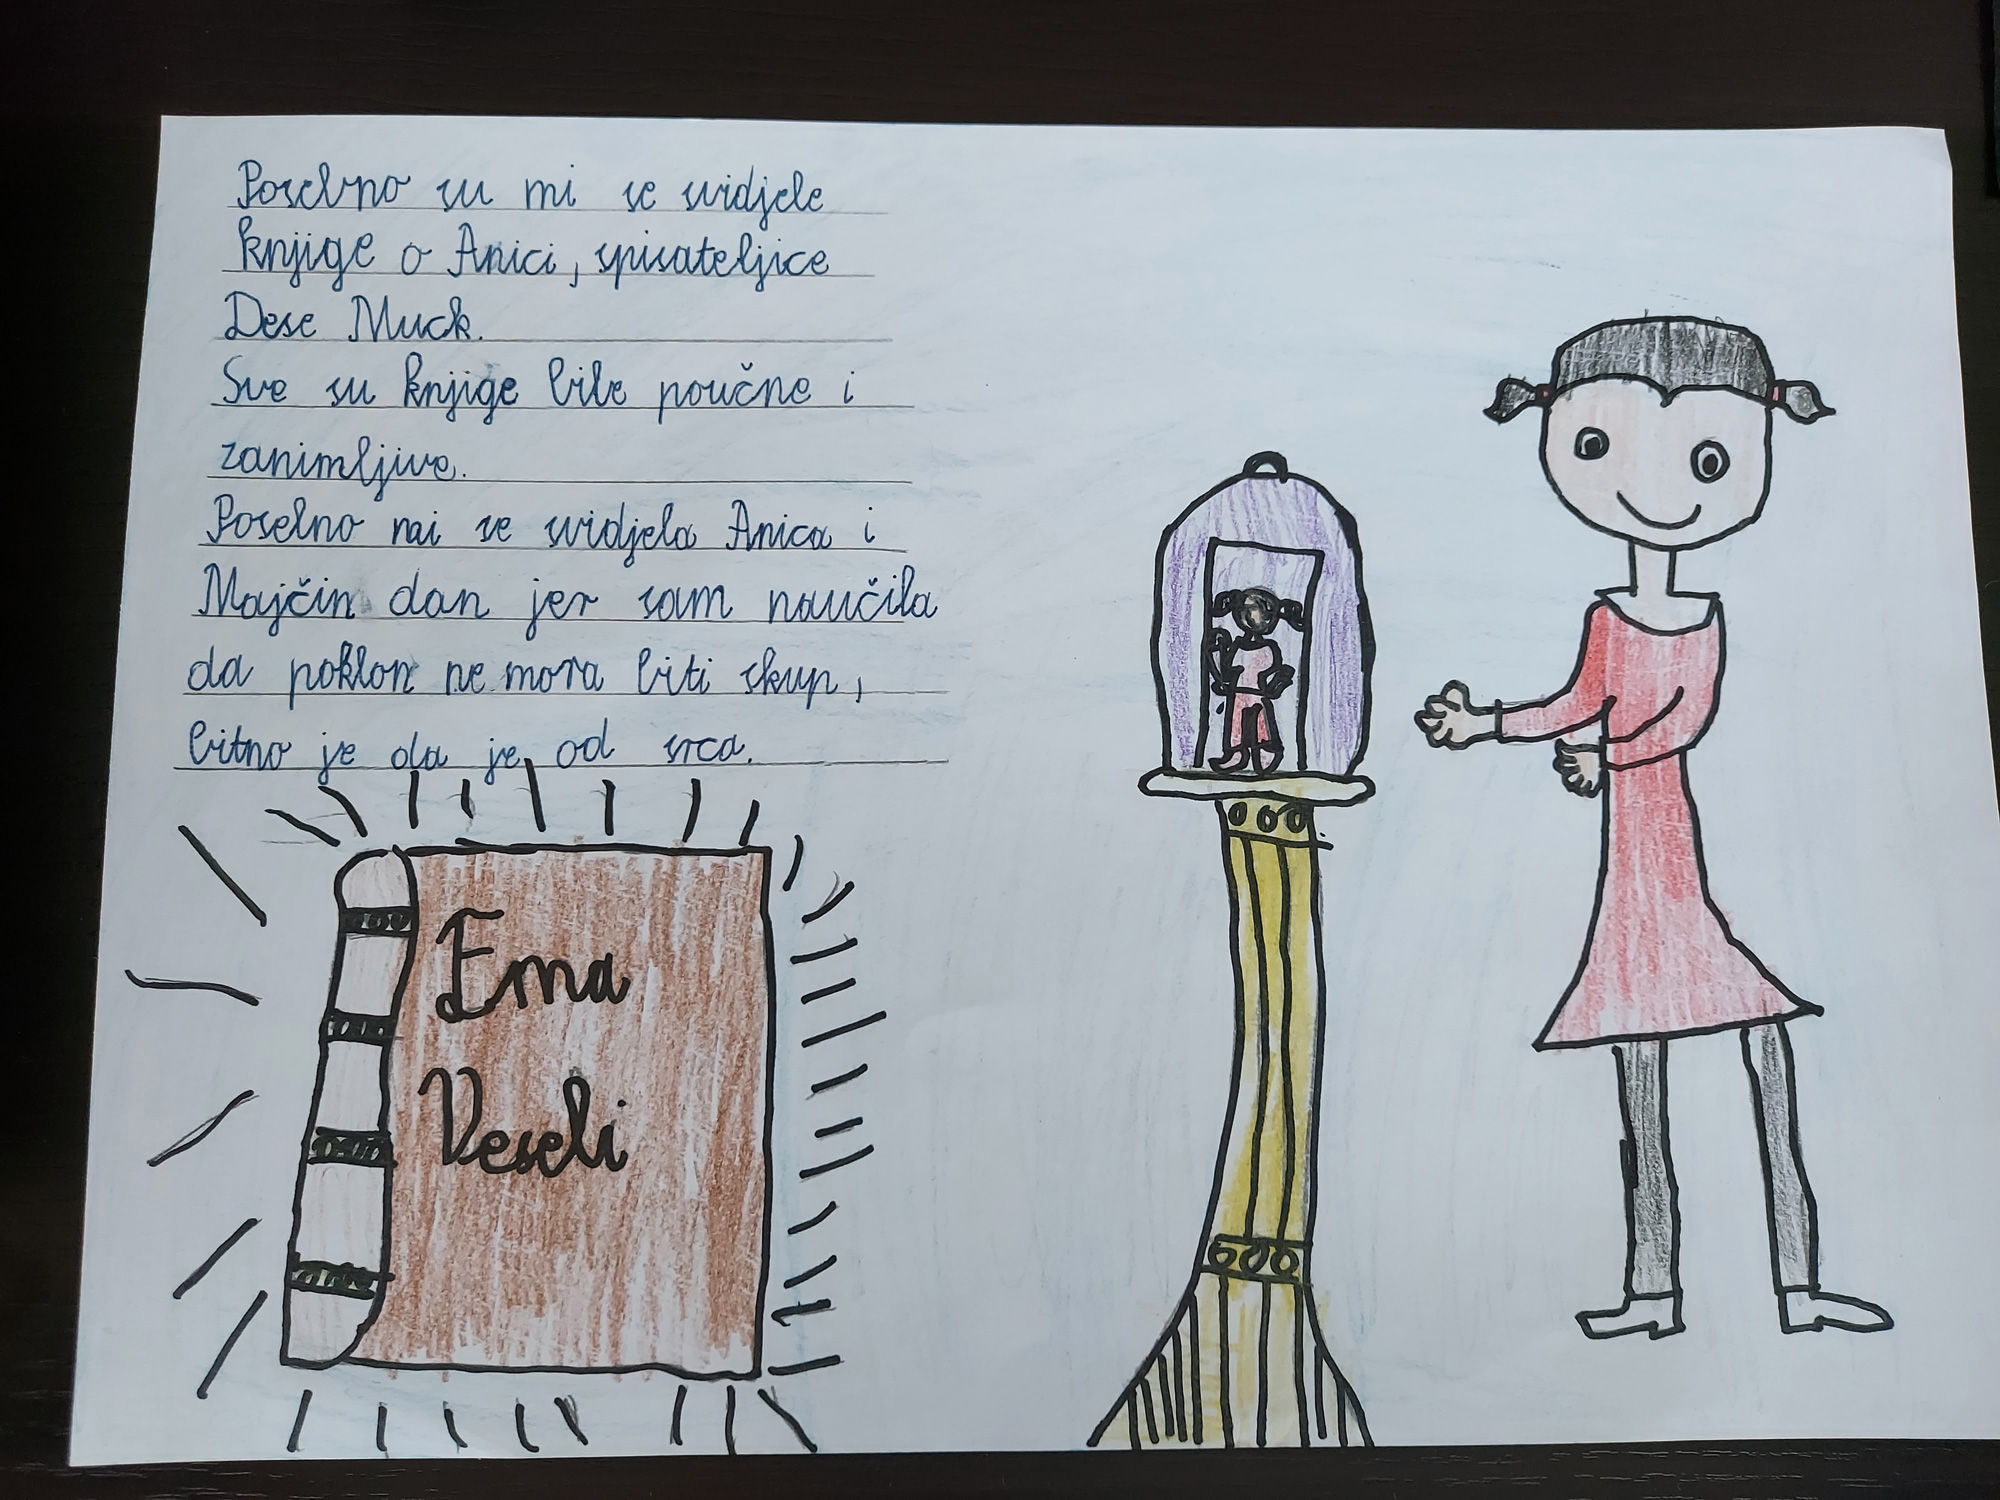 Posebno su mi se svidjele
knjige o Anici, spisateljice
Dese Muck.
Sve su knjige bile poučne i
zanimljive.
Posebno mi se svidjela Anica i
Majčin dan jer sam naučila
da poklon ne mora biti skup,
bitno je da je od srca.
Ema
Veseli